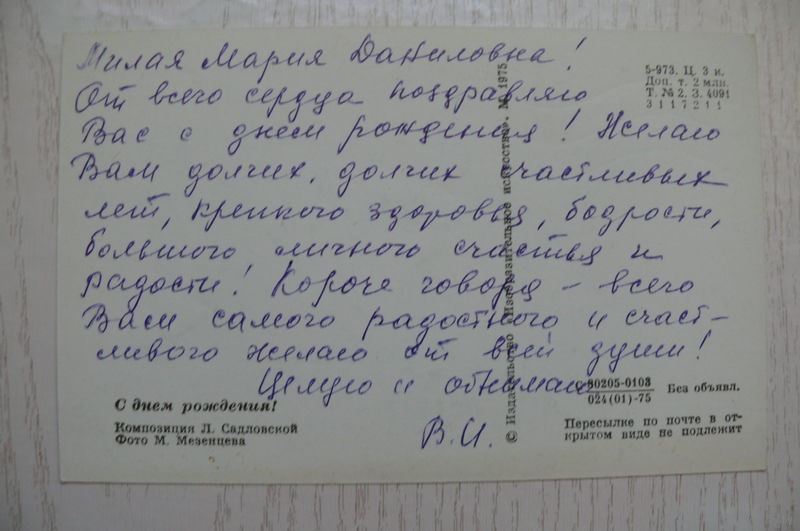 Милая Мария Даниловна!
От всего сердца поздравляю
Вас с днем рождения! Желаю
Вам долгих, долгих счастливых
лет, крепкого здоровья, бодрости,
большого личного счастья и
радости! Короче говоря – всего
Вам самого радостного и счаст-
ливого желаю от всей души!
Целую и обнимаю
В.И.
5-973. Ц. 3 к.
Доп. т. 2 млн.
Т. № 2. З. 4091
3117211
© Издательство «Изобразительное искусство». М. 1975
С днем рождения!
Композиция Л. Садловской
Фото М. Мезенцева
С 80205-0103
024(01)-75
Без объявл.
Пересылке по почте в от-
крытом виде не подлежит